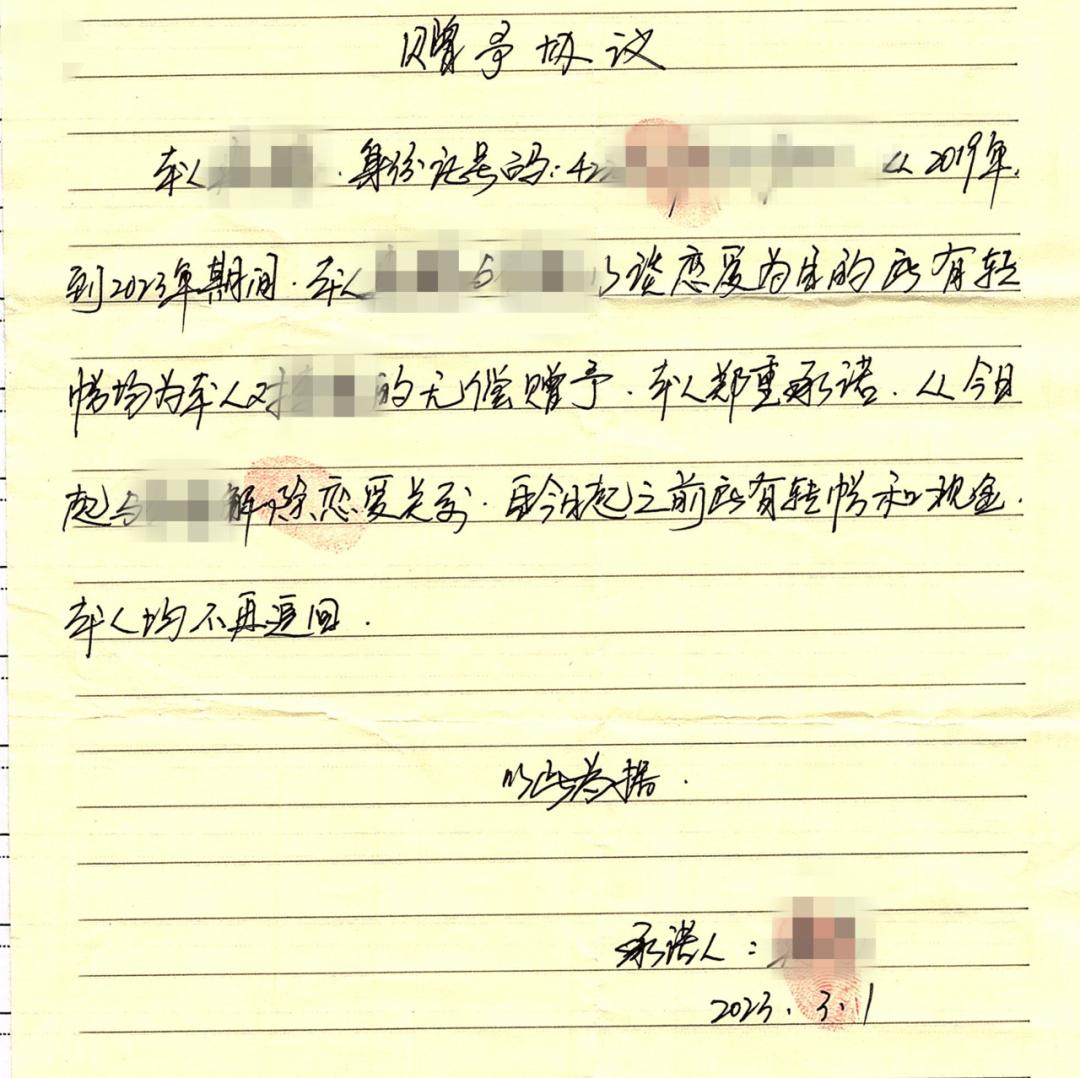 赠予协议
本人 . 身份证号码:42 从2019年.
到2023年期间.本人 与 以谈恋爱为由的所有转
帐均为本人对 的无偿赠予.本人郑重承诺.从今日
起与 解除恋爱关系. 今日起之前所有转帐和现金.
本人均不再追回.
以此为据.
承诺人:
2023.3.1